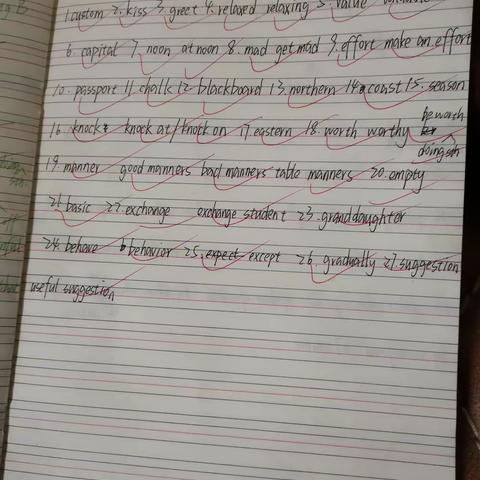 1. custom 2. kiss 3. greet 4. relaxed relaxing 5. value
6. capital 7. noon at noon 8. mad get mad 9. effort make an effort
10. passport 11. chalk 12. blackboard 13. northern 14. coast 15. season
16. knock knock at/knock on 17. eastern 18. worth worthy be worth doing sth
19. manner good manners bad manners table manners 20. empty
21. basic 22. exchange exchange student 23. granddaughter
24. behave behavior 25. expect except 26. gradually 27. suggestion
useful suggestion